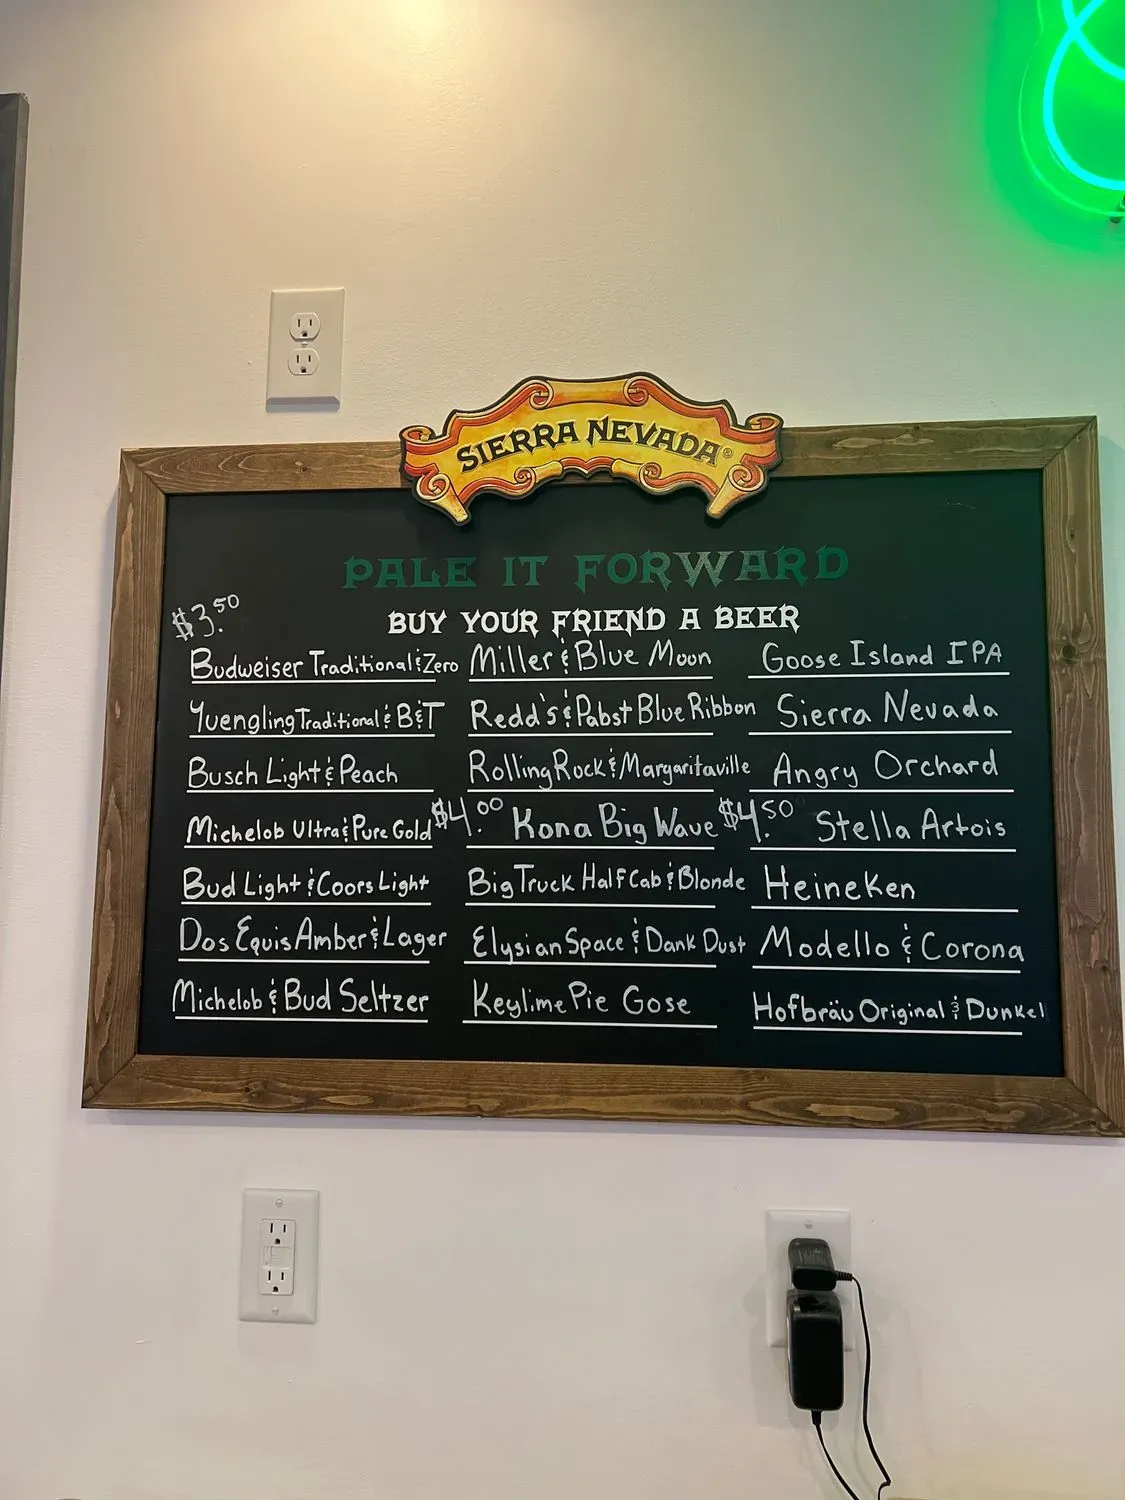 SIERRA NEVADA®
PALE IT FORWARD
BUY YOUR FRIEND A BEER
$3.50
Budweiser Traditional & Zero
Yuengling Traditional & B&T
Busch Light & Peach
Michelob Ultra & Pure Gold
Bud Light & Coors Light
Dos Equis Amber & Lager
Michelob & Bud Seltzer
Miller & Blue Moon
Redd's & Pabst Blue Ribbon
Rolling Rock & Margaritaville
$4.00 Kona Big Wave
Big Truck Half Cab & Blonde
Elysian Space & Dank Dust
Keylime Pie Gose
Goose Island IPA
Sierra Nevada
Angry Orchard
$4.50 Stella Artois
Heineken
Modello & Corona
Hofbräu Original & Dunkel